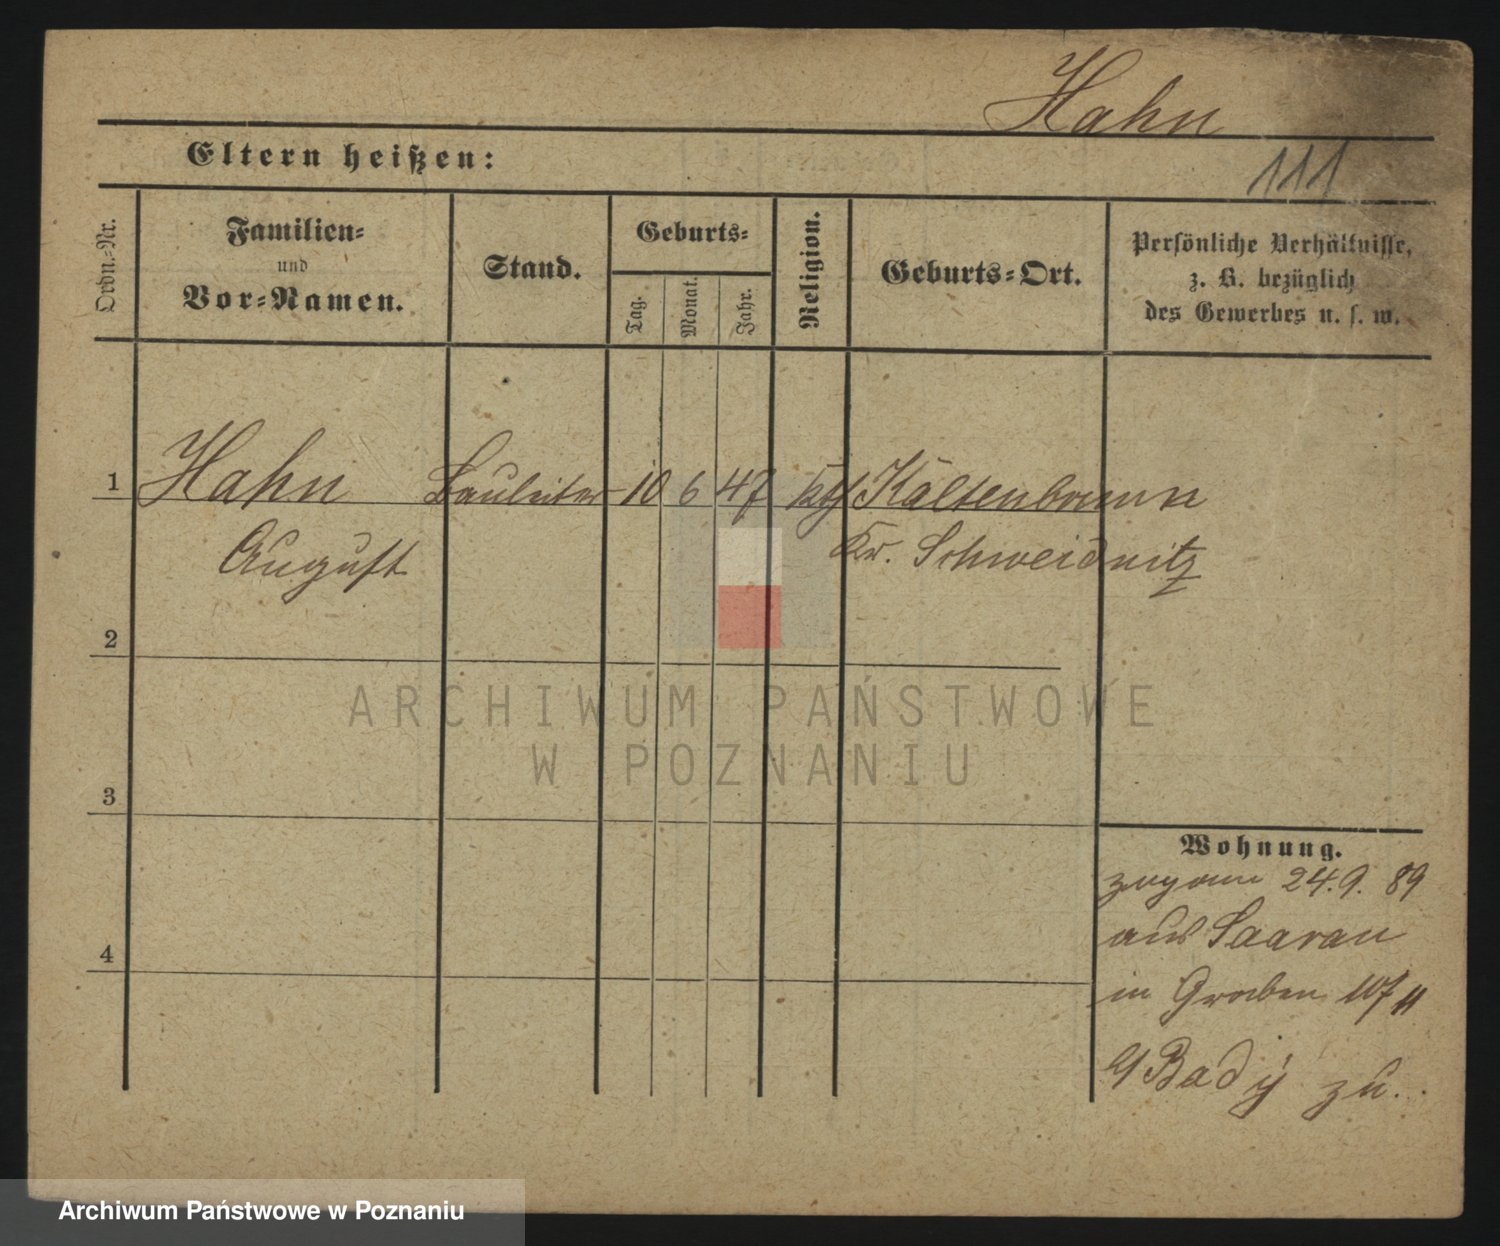 Hahn
Eltern heißen:
111
Ordn.-Nr.
Familien-
und
Vor-Namen.
Stand.
Geburts-
Tag.
Monat.
Jahr.
Religion.
Geburts-Ort.
Persönliche Verhältnisse,
z. B. bezüglich
des Gewerbes u. s. w.
1 Hahn Bauleiter 10 6 47 kth Kaltenbrunn
August Kr. Schweidnitz
2
3
4
ARCHIWUM PAŃSTWOWE
W POZNANIU
Wohnung.
24.9. 89
aus Saarau
in Graben
zu.
Archiwum Państwowe w Poznaniu